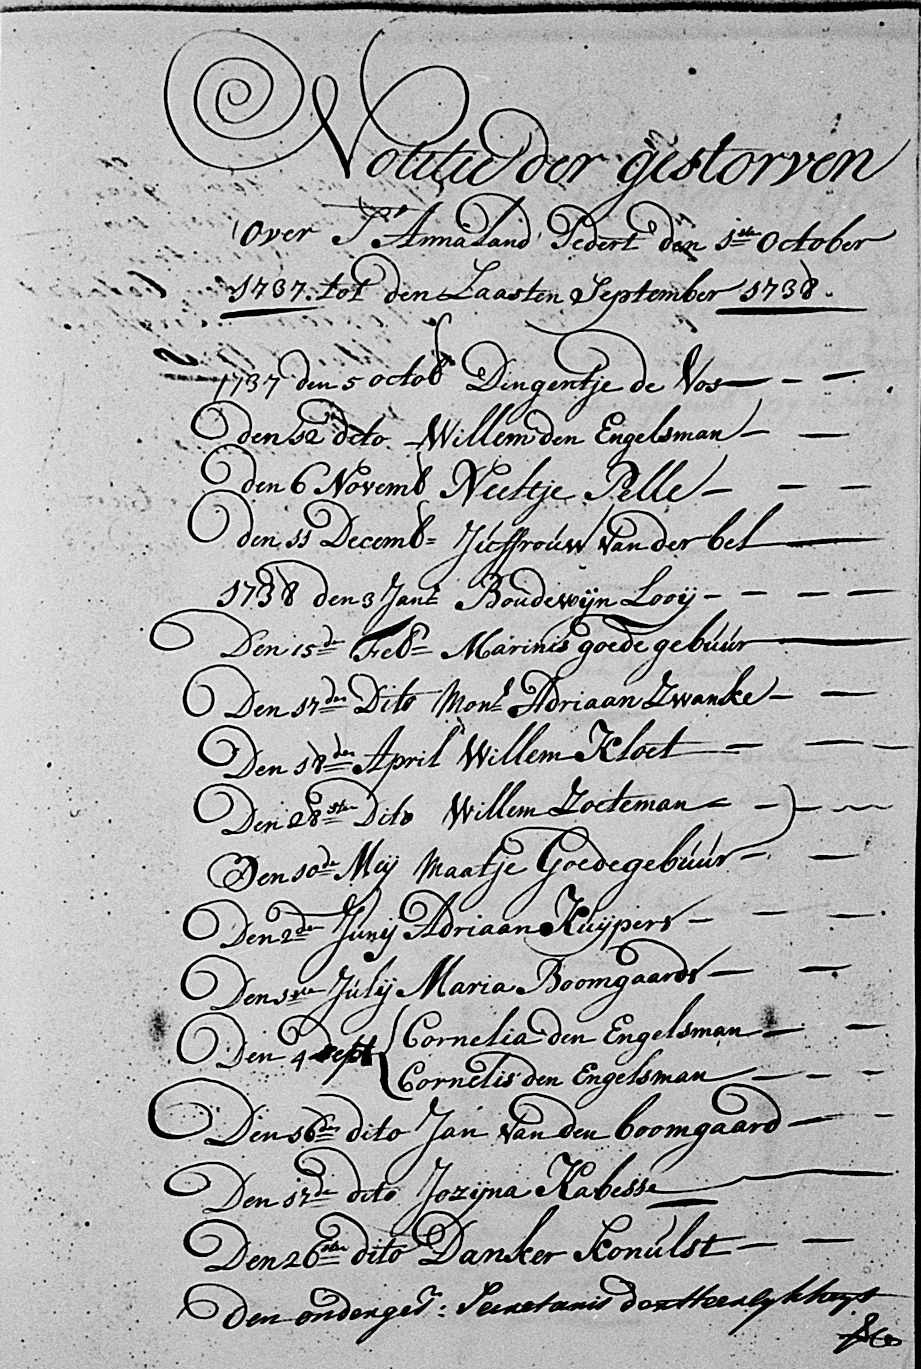 Notitie der gestorven
Over St Annaland Zedert den 1ste October
1737. tot den Laasten September 1738.
1737 den 5 octob Dingentje de Vos
den 12 dito Willem den Engelsman
den 6 Novemb Neeltje Pelle
den 11 Decemb= Juffrouw van der bel
1738 den 3 Jan Boudewijn Looij
Den 15de Feb Marinis goede gebúúr
Den 17den Dito Mons Adriaan Zwanke
Den 18den April Willem Kloet
Den 28ste Dito Willem Zoeteman
Den 10de Meij Maatje Goedegebúúr
Den 2den Junij Adriaan Kuijpers
Den 1ste Júlij Maria Boomgaards
Den 4 sept { Cornelia den Engelsman
Cornelis den Engelsman
Den 16den dito Jan van den boomgaard
Den 17de dito Jozijna Kabesse
Den 26ste dito Danker
Den onderget: Secretaris